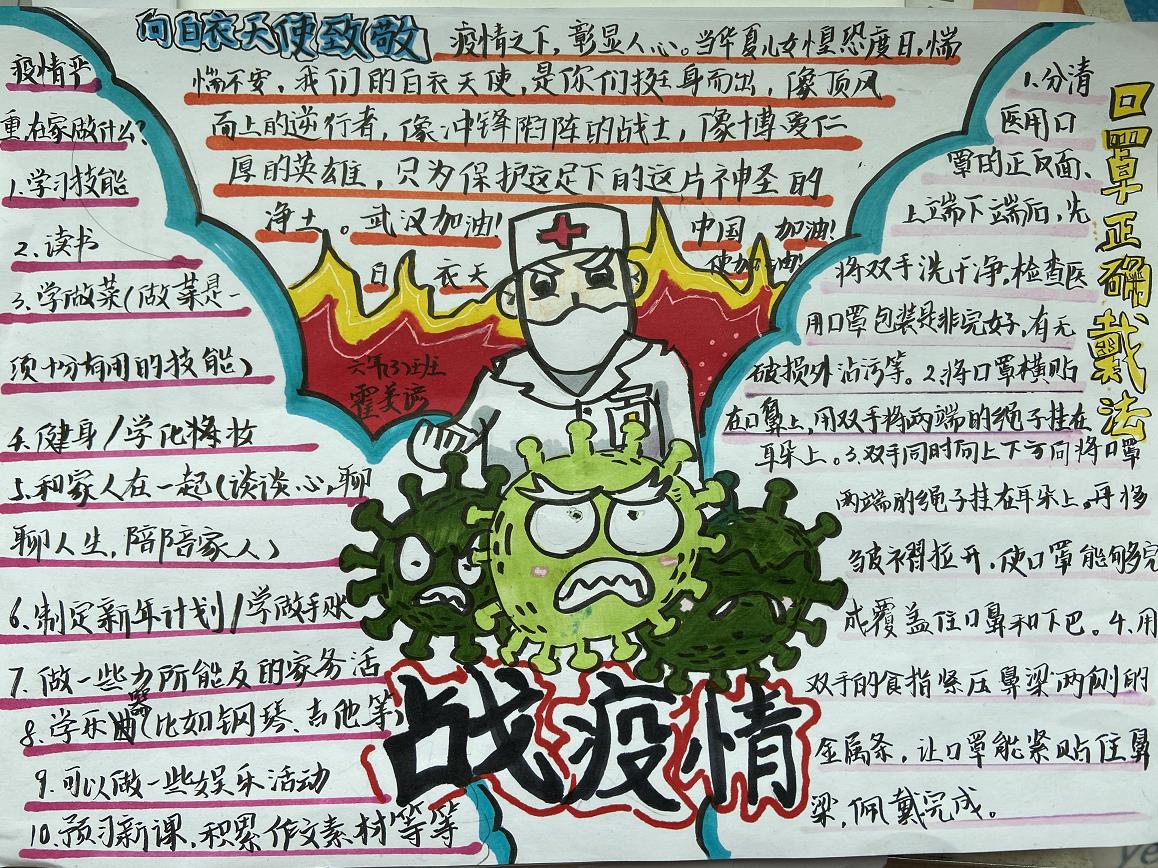 向白衣天使致敬
疫情之下,彰显人心。当华夏儿女惶恐度日,惴
惴不安,我们的白衣天使,是你们挺身而出,像顶风
而上的逆行者,像冲锋陷阵的战士,像博爱仁
厚的英雄,只为保护这足下的这片神圣的
净土。武汉加油!中国加油!
白衣天使加油!
疫情严
重,在家做什么?
1.学习技能
2.读书
3.学做菜(做菜是一
项十分有用的技能)
4.健身/学化妆
5.和家人在一起(谈谈心,聊
聊人生,陪陪家人)
6.制定新年计划/学做手账
7.做一些力所能及的家务活
8.学乐器(比如钢琴、吉他等)
9.可以做一些娱乐活动
10.预习新课,积累作文素材等等
六年(3)班
霍美
战疫情
口罩正确戴法
1.分清
医用口
罩的正反面、
上端下端后,先
将双手洗干净,检查医
用口罩包装是非完好,有无
破损外沾污等。2.将口罩横贴
在口鼻上,用双手将两端的绳子挂在
耳朵上。3.双手同时向上下方向将口罩
两端的绳子挂在耳朵上,再将
皱褶拉开,使口罩能够完
成覆盖住口鼻和下巴。4.用
双手的食指紧压鼻梁两侧的
金属条,让口罩能紧贴住鼻
梁,佩戴完成。